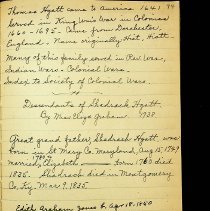 Thomas Hyatt came to America 1641 79
Served in King Wm's War in Colonies
1660-1695. Came from Dorchester,
England. Name originally Hiat, Hiatt.
Many of this family served in Rev. War,
Indian Wars & Colonial Wars.
Index to Society of Colonial Wars.
Descendants of Shadrach Hyatt
By Mrs Eliza Graham. 1938.
Great grand father, Shadrach Hyatt was
born in St Mary Co. Maryland, Aug. 15, 1769
married, Elizabeth born 1780 died
1835. Shadrach died in Montgomery
Co., Ky. Mar 9, 1835.
Edith Graham Jones Apr 18, 1940